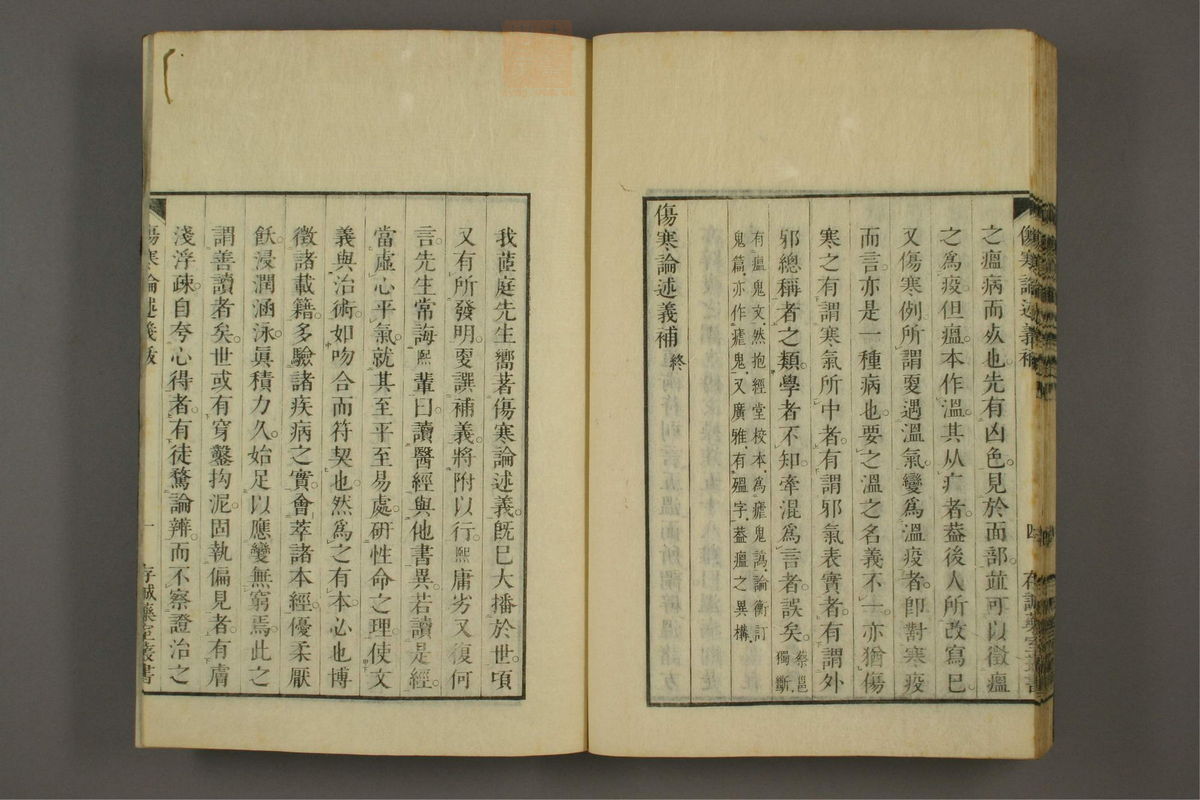 傷寒論述義補
四
存誠藥室叢書
之瘟病而死也先有凶色見於面部竝可以徵瘟
之爲疫但瘟本作溫其从疒者葢後人所改寫已
又傷寒例所謂更遇溫氣變爲溫疫者卽對寒疫
而言亦是一種病也要之溫之名義不一亦猶傷
寒之有謂寒氣所中者有謂邪氣表實者有謂外
邪總稱者之類學者不知牽混爲言者誤矣蔡邕獨斷
有瘟鬼文然抱經堂校本爲瘧鬼譌論衡訂
鬼篇亦作瘧鬼又廣雅有殟字葢瘟之異構
傷寒論述義補終
我茝庭先生嚮著傷寒論述義旣已大播於世項
又有所發明更譔補義將附以行熙庸劣又復何
言先生常誨熙輩曰讀醫經與他書異若讀是經
當虛心平氣就其至平至易處硏性命之理使文
義與治術如吻合而符契也然爲之有本必也博
徵諸載籍多驗諸疾病之實會萃諸本經優柔厭
飫浸潤涵泳眞積力久始足以應變無窮焉此之
謂善讀者矣世或有穿鑿拘泥固執偏見者有膚
淺浮疎自夸心得者有徒騖論辨而不察證治之
傷寒論述義跋
一
存誠藥室叢書